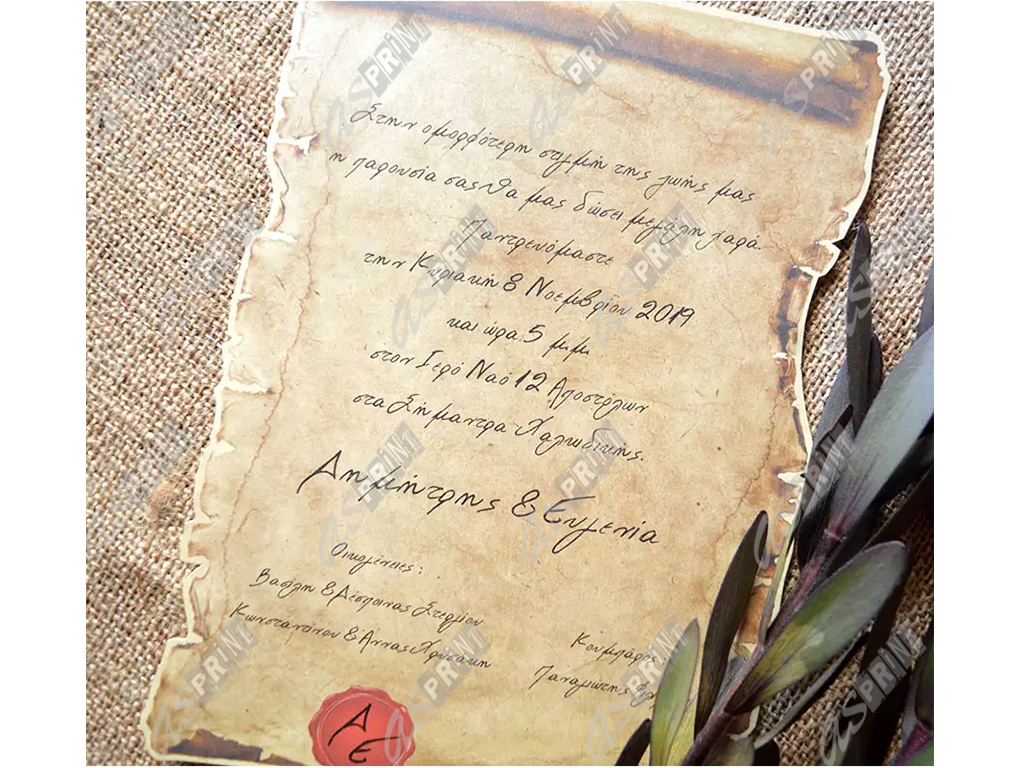 Στην ομορφότερη στιγμή της ζωής μας
η παρουσία σας θα μας δώσει μεγάλη χαρά.
Παντρευόμαστε
την Κυριακή 8 Νοεμβρίου 2019
και ώρα 5 μ.μ.
στον Ιερό Ναό 12 Αποστόλων
στα Σήμαντρα Χαλκιδικής.
Δημήτρης & Ευγενία
Οικογένειες:
Βασίλη & Δέσποινας Στεργίου
Κωνσταντίνου & Άννας Χρυσάκη
Κουμπάρος:
Παναγιώτης
Δ
Ε
asprint